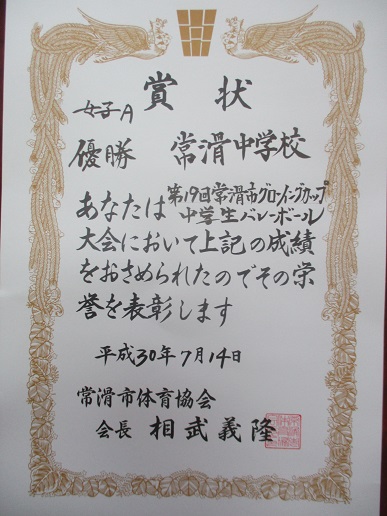 賞状
女子A
優勝 常滑中学校
あなたは第19回常滑市グローイングカップ
中学生バレーボール
大会において上記の成績
をおさめられたのでその栄
誉を表彰します
平成30年7月14日
常滑市体育協会
会長 相武義隆